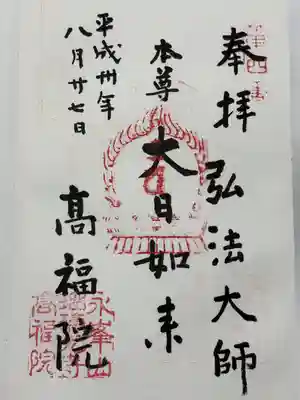 奉拝 弘法大師
本尊 大日如来
平成卅年
八月廿七日
高福院